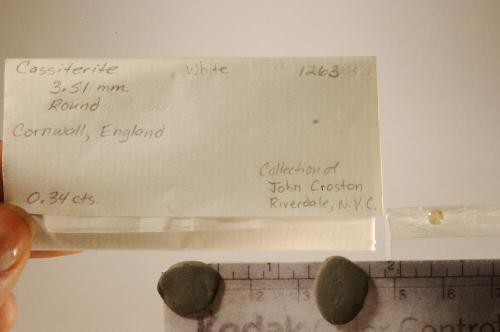 Cassiterite White 1263
3.51 mm
Round
Cornwall, England
Collection of
John Croston
Riverdale, N.Y.C.
0.34 cts.
1 2 3 5 6
Kodak Color Control